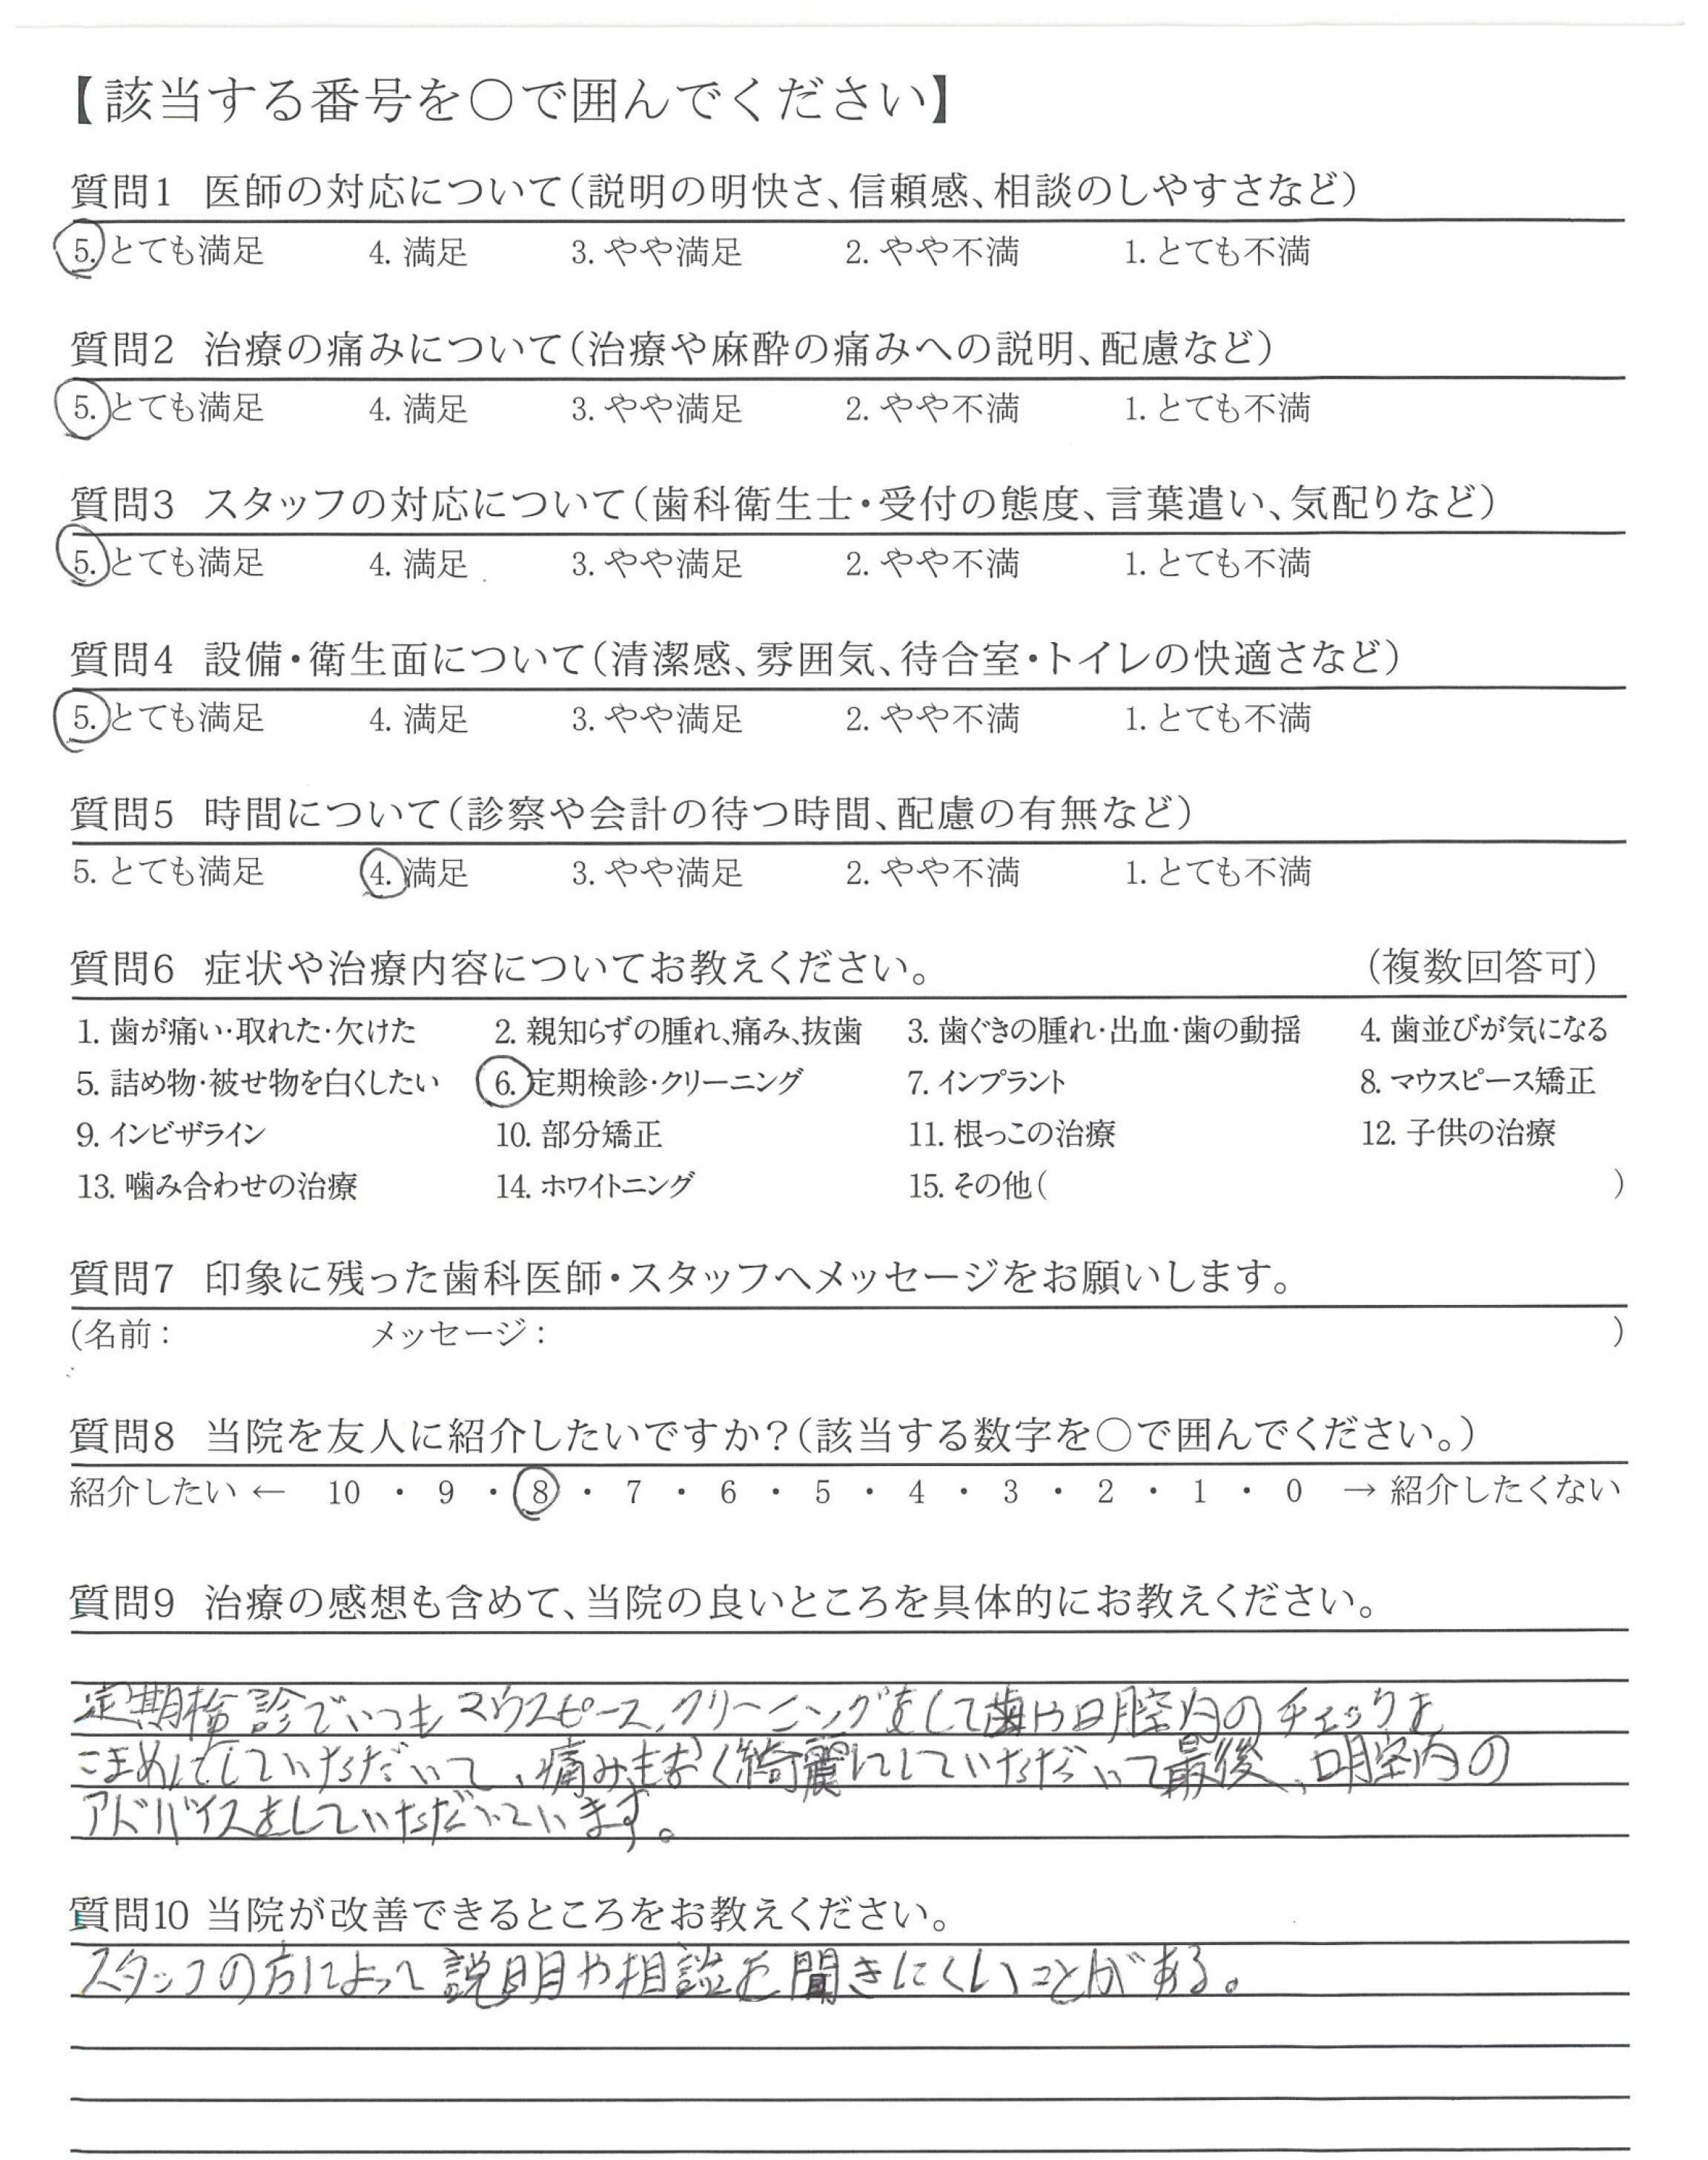 【該当する番号を〇で囲んでください】
質問1 医師の対応について(説明の明快さ、信頼感、相談のしやすさなど)
5. とても満足 4. 満足 3. やや満足 2. やや不満 1. とても不満
質問2 治療の痛みについて(治療や麻酔の痛みへの説明、配慮など)
5. とても満足 4. 満足 3. やや満足 2. やや不満 1. とても不満
質問3 スタッフの対応について(歯科衛生士・受付の態度、言葉遣い、気配りなど)
5. とても満足 4. 満足 3. やや満足 2. やや不満 1. とても不満
質問4 設備・衛生面について(清潔感、雰囲気、待合室・トイレの快適さなど)
5. とても満足 4. 満足 3. やや満足 2. やや不満 1. とても不満
質問5 時間について(診察や会計の待つ時間、配慮の有無など)
5. とても満足 4. 満足 3. やや満足 2. やや不満 1. とても不満
質問6 症状や治療内容についてお教えください。 (複数回答可)
1. 歯が痛い・取れた・欠けた 2. 親知らずの腫れ、痛み、抜歯 3. 歯ぐきの腫れ・出血・歯の動揺 4. 歯並びが気になる
5. 詰め物・被せ物を白くしたい 6. 定期検診・クリーニング 7. インプラント 8. マウスピース矯正
9. インビザライン 10. 部分矯正 11. 根っこの治療 12. 子供の治療
13. 噛み合わせの治療 14. ホワイトニング 15. その他( )
質問7 印象に残った歯科医師・スタッフへメッセージをお願いします。
(名前: メッセージ: )
質問8 当院を友人に紹介したいですか?(該当する数字を〇で囲んでください。)
紹介したい ← 10 ・ 9 ・ 8 ・ 7 ・ 6 ・ 5 ・ 4 ・ 3 ・ 2 ・ 1 ・ 0 → 紹介したくない
質問9 治療の感想も含めて、当院の良いところを具体的にお教えください。
定期検診でいつもマウスピース、クリーニングをして歯や口腔内のチェックを
こまめにしていただいて、痛みもなく綺麗にしていただいて最後、口腔内の
アドバイスをしていただいています。
質問10 当院が改善できるところをお教えください。
スタッフの方によって説明や相談を聞きにくいことがある。